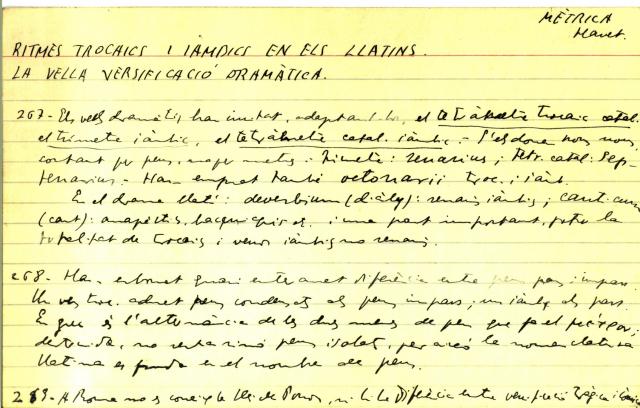 MÈTRICA
Havet.
RITMES TROCAICS I IÀMBICS EN ELS LLATINS.
LA VELLA VERSIFICACIÓ DRAMÀTICA.
267- Els vells dramàtics han imitat, adaptant-lo, el tetràmetre trocaic catal.
el trímetre iàmbic, el tetràmetre catal. iàmbic. - S'els dona nous noms
contant per peus, no per metres. - Trímetre: senarius; tetr. catal: sep-
tenarius. - Han emprat també octonarii troc. i iàmb.
En el drama llatí: deverbium (diàleg): senaris iàmbics; canticum
(cant): anapestis, baquis, i una part important, la
totalitat de trocaics i versos iàmbics no senaris.
268- Han quasi enterament diferència entre peus pars i impars.
Un vers troc. admet peus condensats als peus impars; un iàmbic als pars.
És que és l'alternància de les dues menes de peu que fa el
no sent peus isolats, per això la nomenclatura
llatina es funda en el nombre de peus.
269- A Roma no es coneix la llei de Porson, ni hi ha diferència entre versificació tràgica i còmica